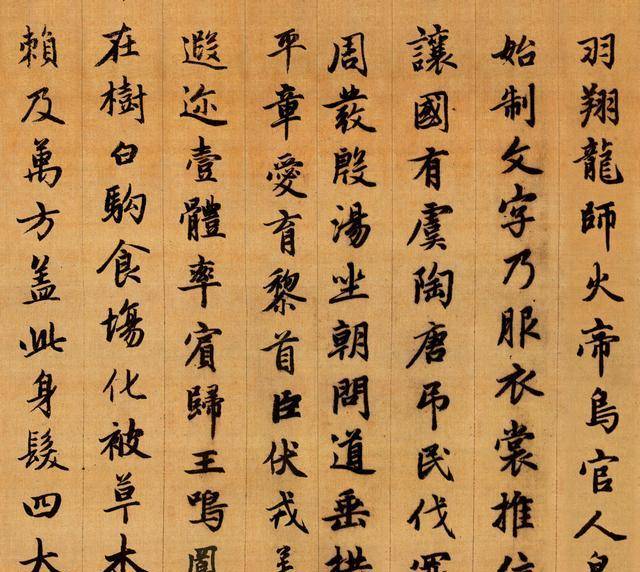 羽翔龍師火帝鳥官人皇
始制文字乃服衣裳推位
讓國有虞陶唐吊民伐罪
周發殷湯坐朝問道垂拱
平章愛育黎首臣伏戎羌
遐迩壹體率賓歸王鳴鳳
在樹白駒食場化被草木
賴及萬方盖此身髮四大